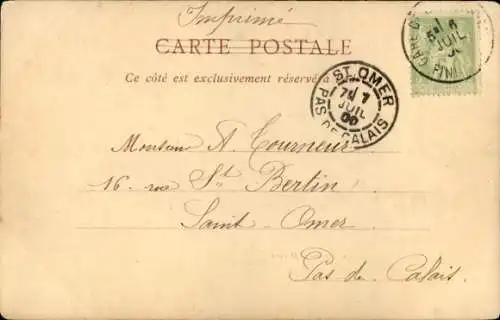 Imprimé
CARTE POSTALE
Ce côté est exclusivement réservé à
GARE
5E 6
JUIL
FINI
ST OMER
7E 7
JUIL
00
PAS DE CALAIS
Monsieur A. Tourneur
16. rue St Bertin
Saint-Omer
Pas de Calais.